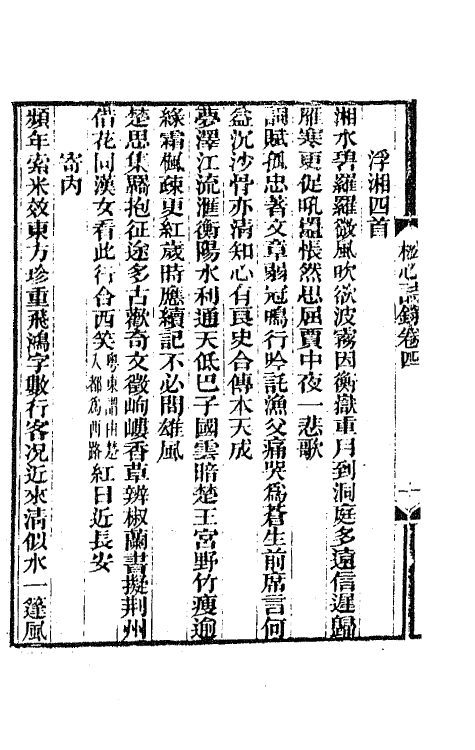 浮湘四首
湘水碧羅羅微風吹欲波霧因衡嶽重月到洞庭多遠信遲歸
雁寒更促吼鼉悵然思屈賈中夜一悲歌
詞賦孤忠著文章弱冠鳴行吟託漁父痛哭為蒼生前席言何
益沉沙骨亦清知心有良史合傳本天成
夢澤江流滙衡陽水利通天低巴子國雲暗楚王宮野竹瘦逾
綠霜楓疎更紅歲時應續記不必問雄風
楚思集羈抱征途多古歡奇文徵岣嶁香草辨椒蘭書擬荆州
借花同漢女看此行合西笑粵東謂由楚入都為西路紅日近長安
寄內
頻年索米效東方珍重飛鴻字數行客況近來清似水一篷風
心詩錄卷四
一